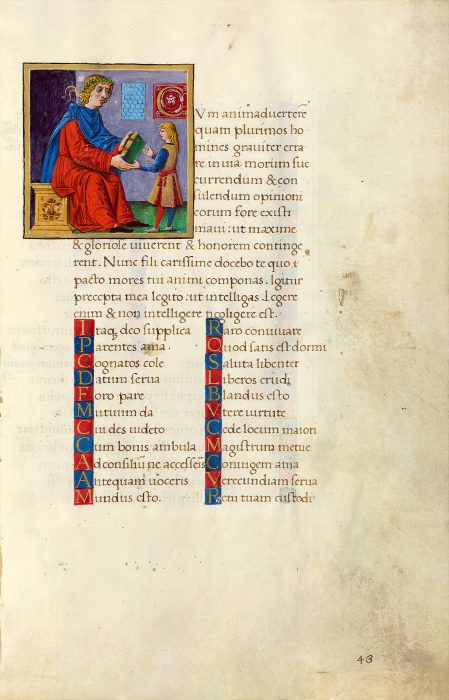 CVm animaduertere
quam plurimos ho
mines grauiter erra
re in uia morum suc
currendum & con
sulendum opinioni
eorum fore existi
maui: ut maxime
& gloriose uiuerent & honorem continge
rent. Nunc fili carissime docebo te quo
pacto mores tui animi componas. Igitur
precepta mea legito: ut intelligas. Legere
enim & non intelligere negligere est.
Itaq; deo supplica
Parentes ama.
Cognatos cole
Datum serua
Foro pare
Mutuum da
Cui des uideto
Cum bonis ambula
Ad consiliū ne accesseris
Antequam uoceris
Mundus esto.
Raro conuiuare
Quod satis est dormi
Saluta libenter
Liberos erudi
Blandus esto
Vtere uirtute
Cede locum maiori
Magistrum metue
Coniugem ama
Verecundiam serua
Rem tuam custodi
43